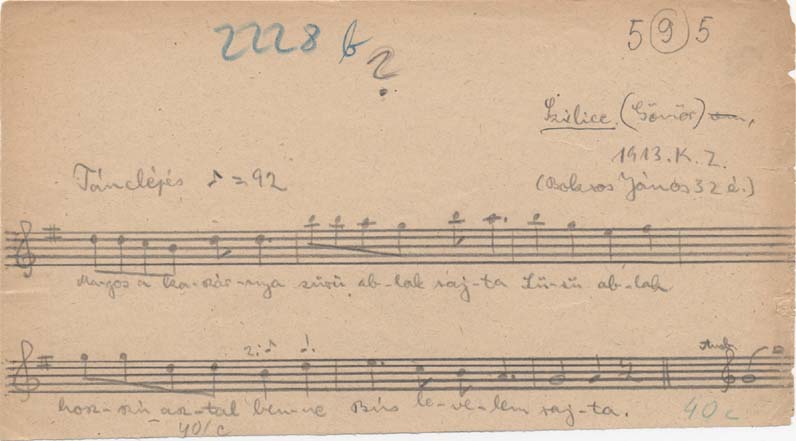 2228 b ?
5 9 5
Szilice (Gömör)
1913. K. Z.
Tánclépés ♪ = 92
(Bokros János 32 é.)
Magos a ka-szár-nya sűrű ab-lak raj-ta Sű-rű ab-lak
2.
hosz-szú asz-tal ben-ne Bús le-ve-lem raj-ta.
40 c.
40/c